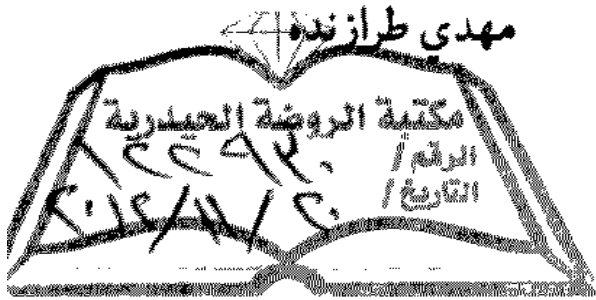 مهدي طرازنده
مكتبة الروضة الحيدرية
الرقم / ١٢٢٩٣٠
التاريخ / ٢٠ / ١١ / ٢٠١٢